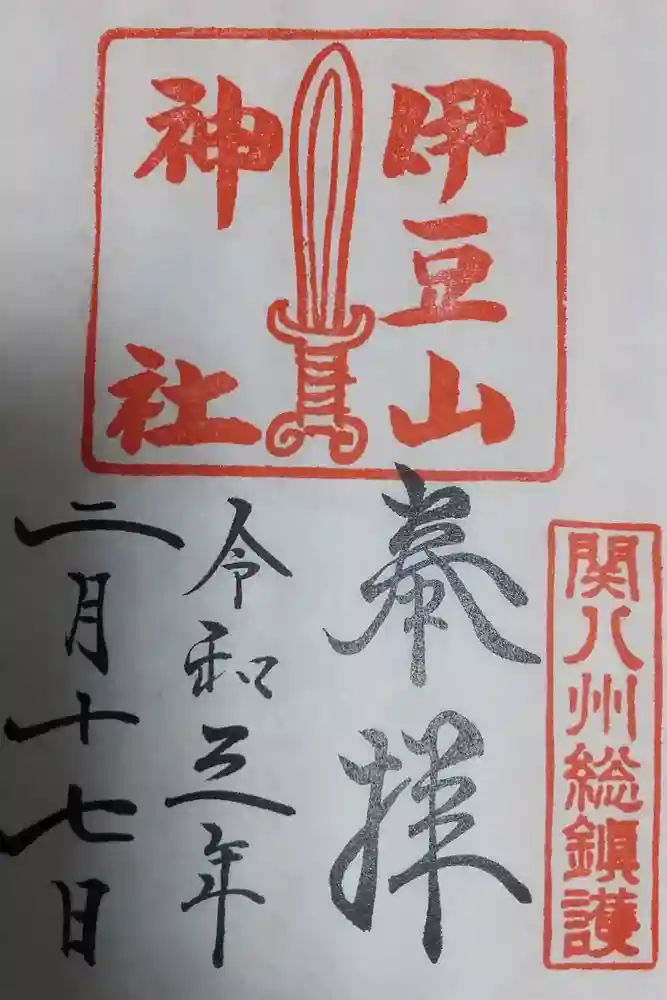 伊豆山
神社
関八州総鎮護
奉拝
令和三年
二月十七日